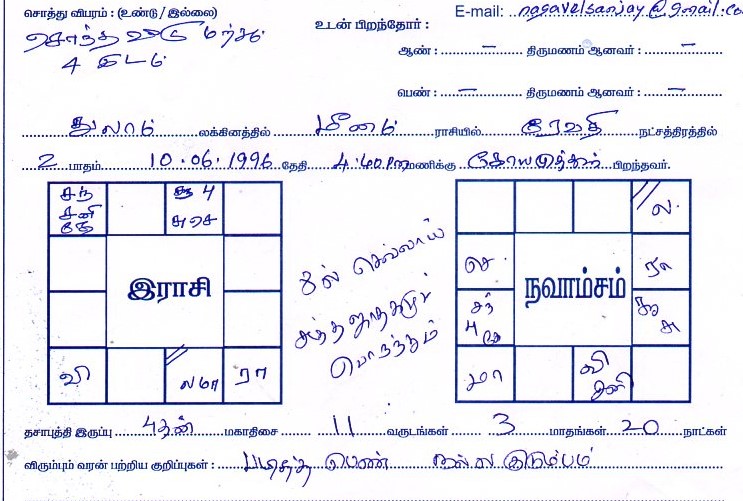 சொத்து விபரம் : (உண்டு / இல்லை)
E-mail: nagavelsanjay@gmail.co
சொந்த வீடு
4 இடம்
உடன் பிறந்தோர் :
ஆண் : – திருமணம் ஆனவர் : –
பெண் : – திருமணம் ஆனவர் : –
துலாம் லக்கினத்தில் மீனம் ராசியில் ரேவதி நட்சத்திரத்தில்
2 பாதம் 10.06.1996 தேதி 4:40 PM மணிக்கு கோயமுத்தூர் பிறந்தவர்.
சந் சனி கே
சூ பு சு செ
இராசி
வி
ல மா
ரா
8ல் செவ்வாய்
சுத்த ஜாதகமும்
பொருந்தும்
ல
செ
ரா
நவாம்சம்
சந் பு கே
சூ சு
மா
வி சனி
தசாபுத்தி இருப்பு புதன் மகாதிசை 11 வருடங்கள் 3 மாதங்கள் 20 நாட்கள்
விரும்பும் வரன் பற்றிய குறிப்புகள் : படித்த பெண் நல்ல குடும்பம்